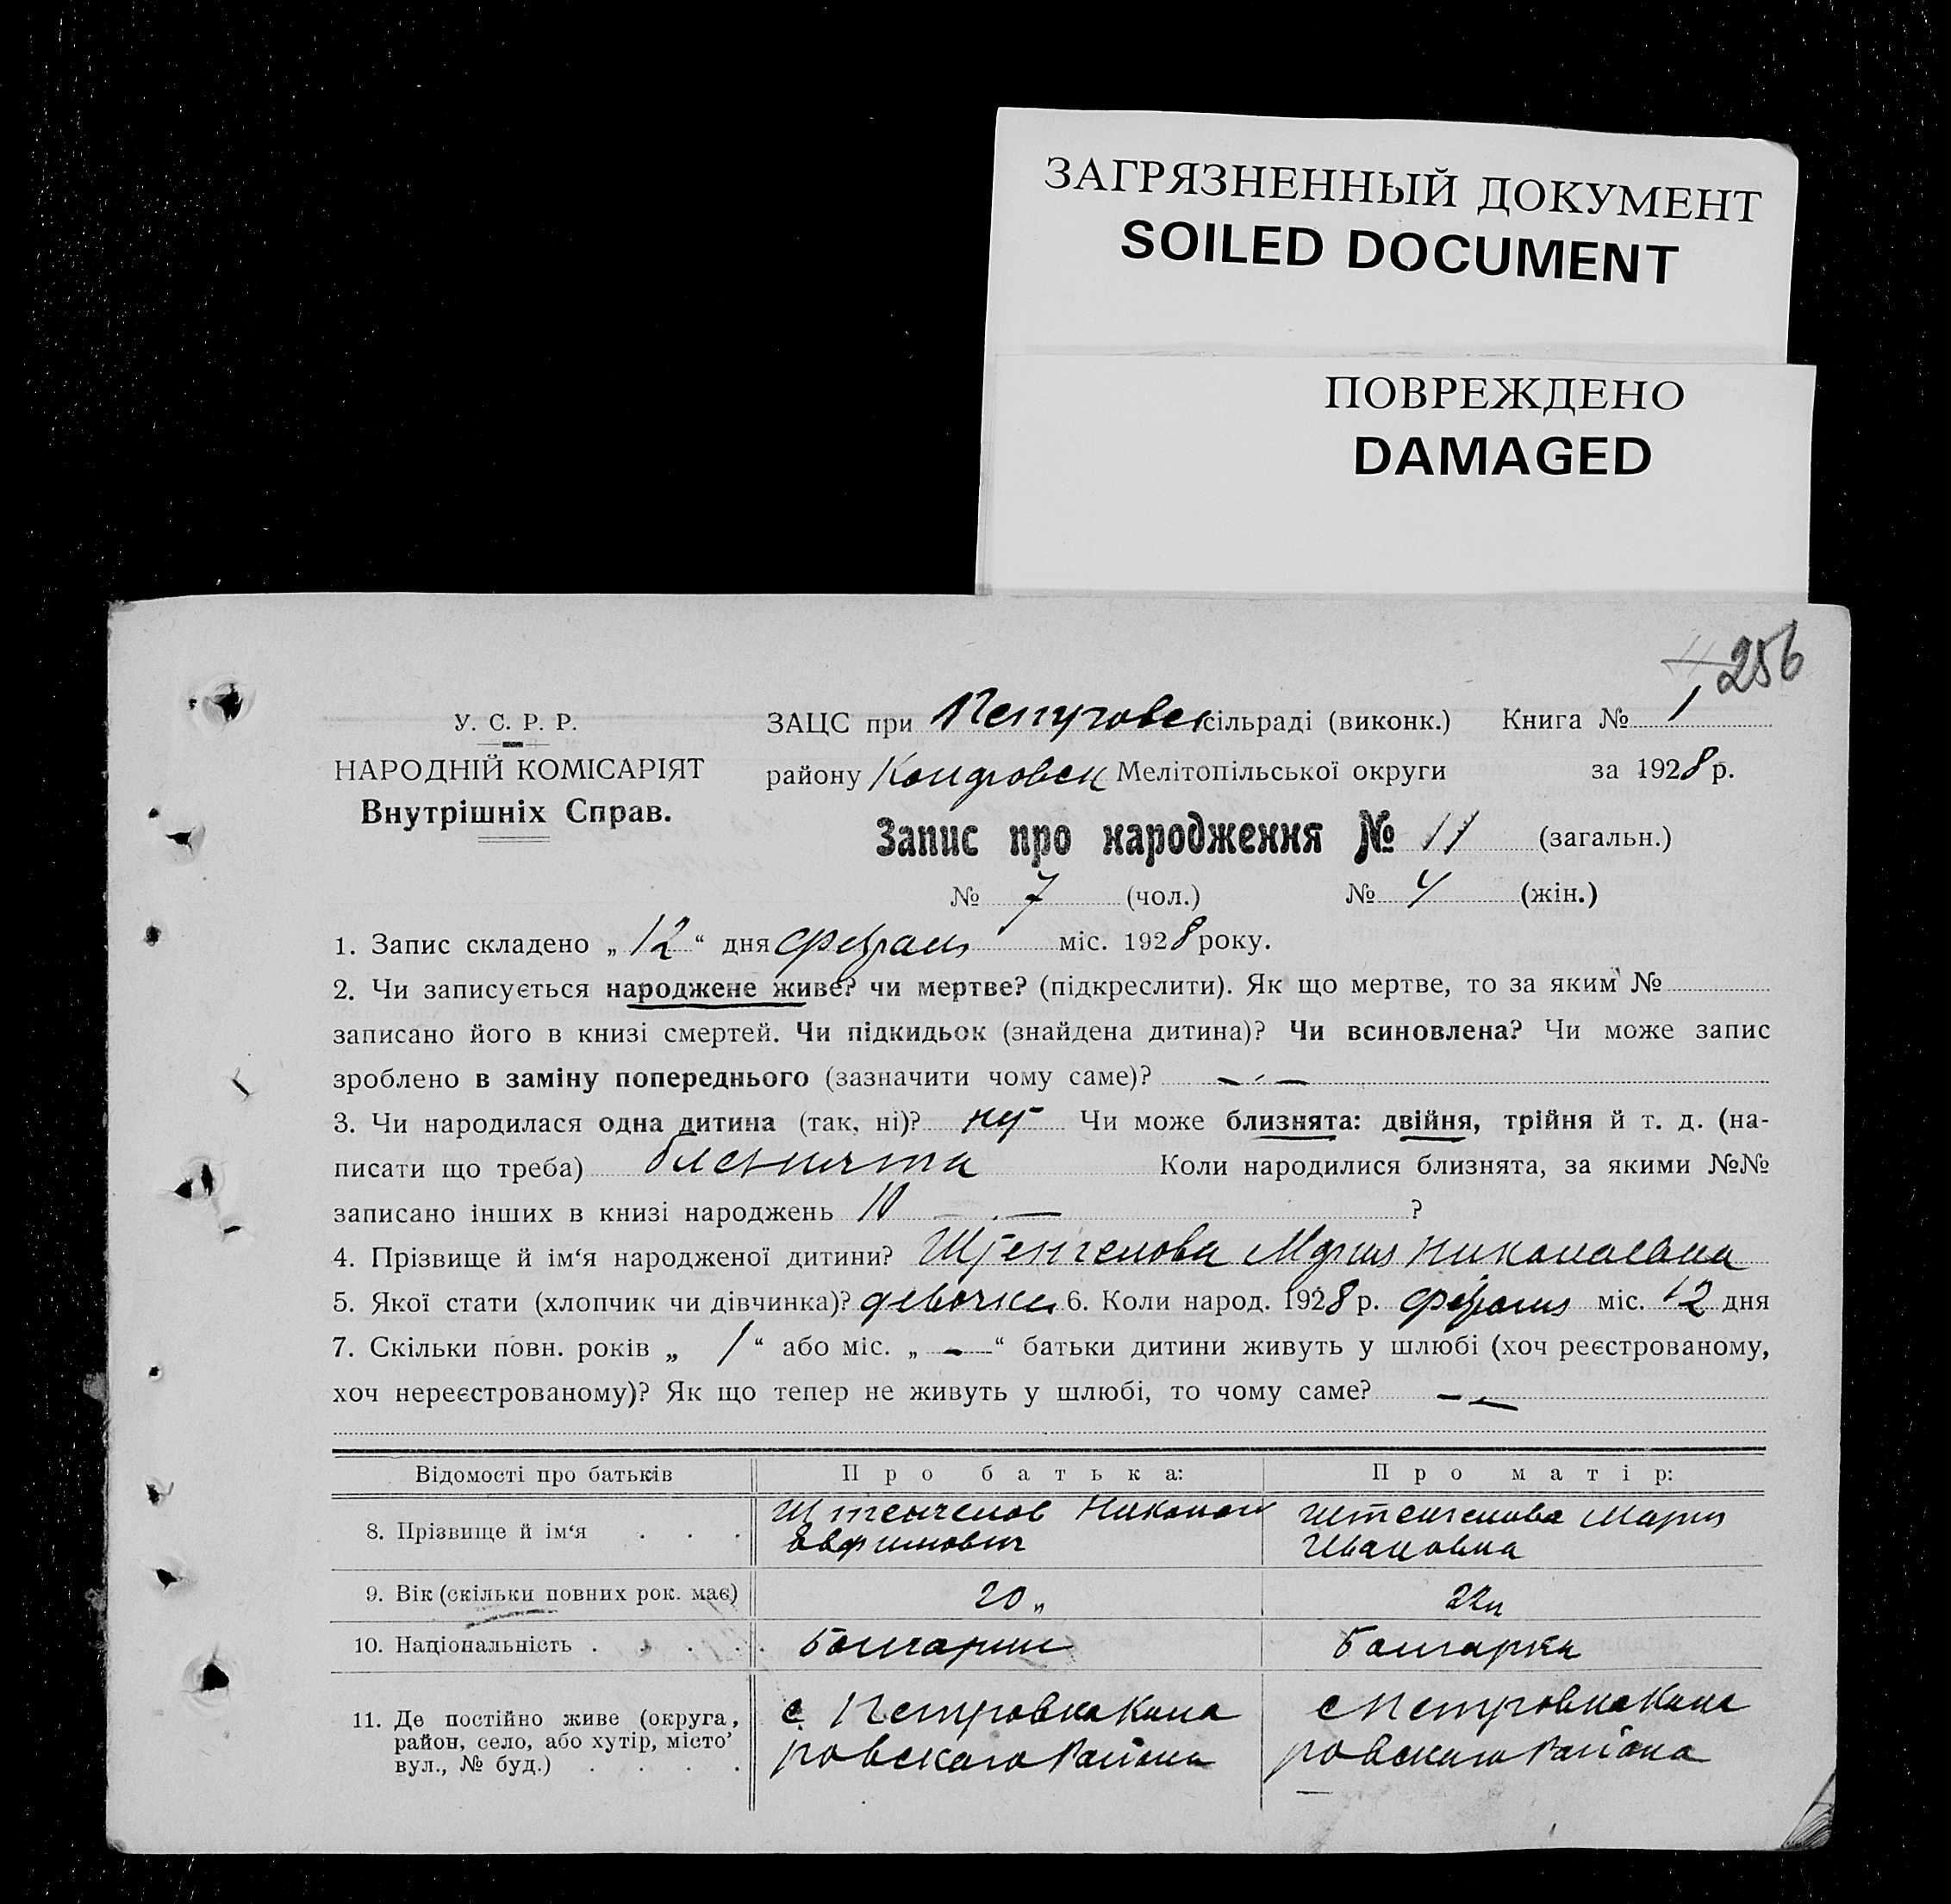 ЗАГРЯЗНЕННЫЙ ДОКУМЕНТ
SOILED DOCUMENT
ПОВРЕЖДЕНО
DAMAGED
256
У. С. Р. Р.
НАРОДНІЙ КОМІСАРІЯТ
Внутрішніх Справ.
ЗАЦС при Петровск сільраді (виконк.) Книга № 1
району Мелітопільської округи за 1928 р.
Запис про народження № 11 (загальн.)
№ 7 (чол.) № 4 (жін.)
1. Запис складено „ 12 “ дня февраля міс. 1928 року.
2. Чи записується народжене живе? чи мертве? (підкреслити). Як що мертве, то за яким №
записано його в книзі смертей. Чи підкидьок (знайдена дитина)? Чи всиновлена? Чи може запис
зроблено в заміну попереднього (зазначити чому саме)? — · —
3. Чи народилася одна дитина (так, ні)? Чи може близнята: двійня, трійня й т. д. (на-
писати що треба) Коли народилися близнята, за якими №№
записано інших в книзі народжень 10 — · — ?
4. Прізвище й ім‘я народженої дитини? Штенгелова Мария Николаевна
5. Якої стати (хлопчик чи дівчинка)? девочка 6. Коли народ. 1928 р. февраля міс. 12 дня
7. Скільки повн. років „ 1 “ або міс. „ — “ батьки дитини живуть у шлюбі (хоч реєстрованому,
хоч нереєстрованому)? Як що тепер не живуть у шлюбі, то чому саме? — —
Відомості про батьків Про батька: Про матір:
8. Прізвище й ім‘я . . . Штенгелов Николай Евфимович Штенгелова Мария Ивановна
9. Вік (скільки повних рок. має) 20 „ 22 „
10. Національність . . . . Болгарин Болгарка
11. Де постійно живе (округа, район, село, або хутір, місто’ вул., № буд.) . . . .
с Петровка
ровскаго Района
с Петровка
ровскаго Района